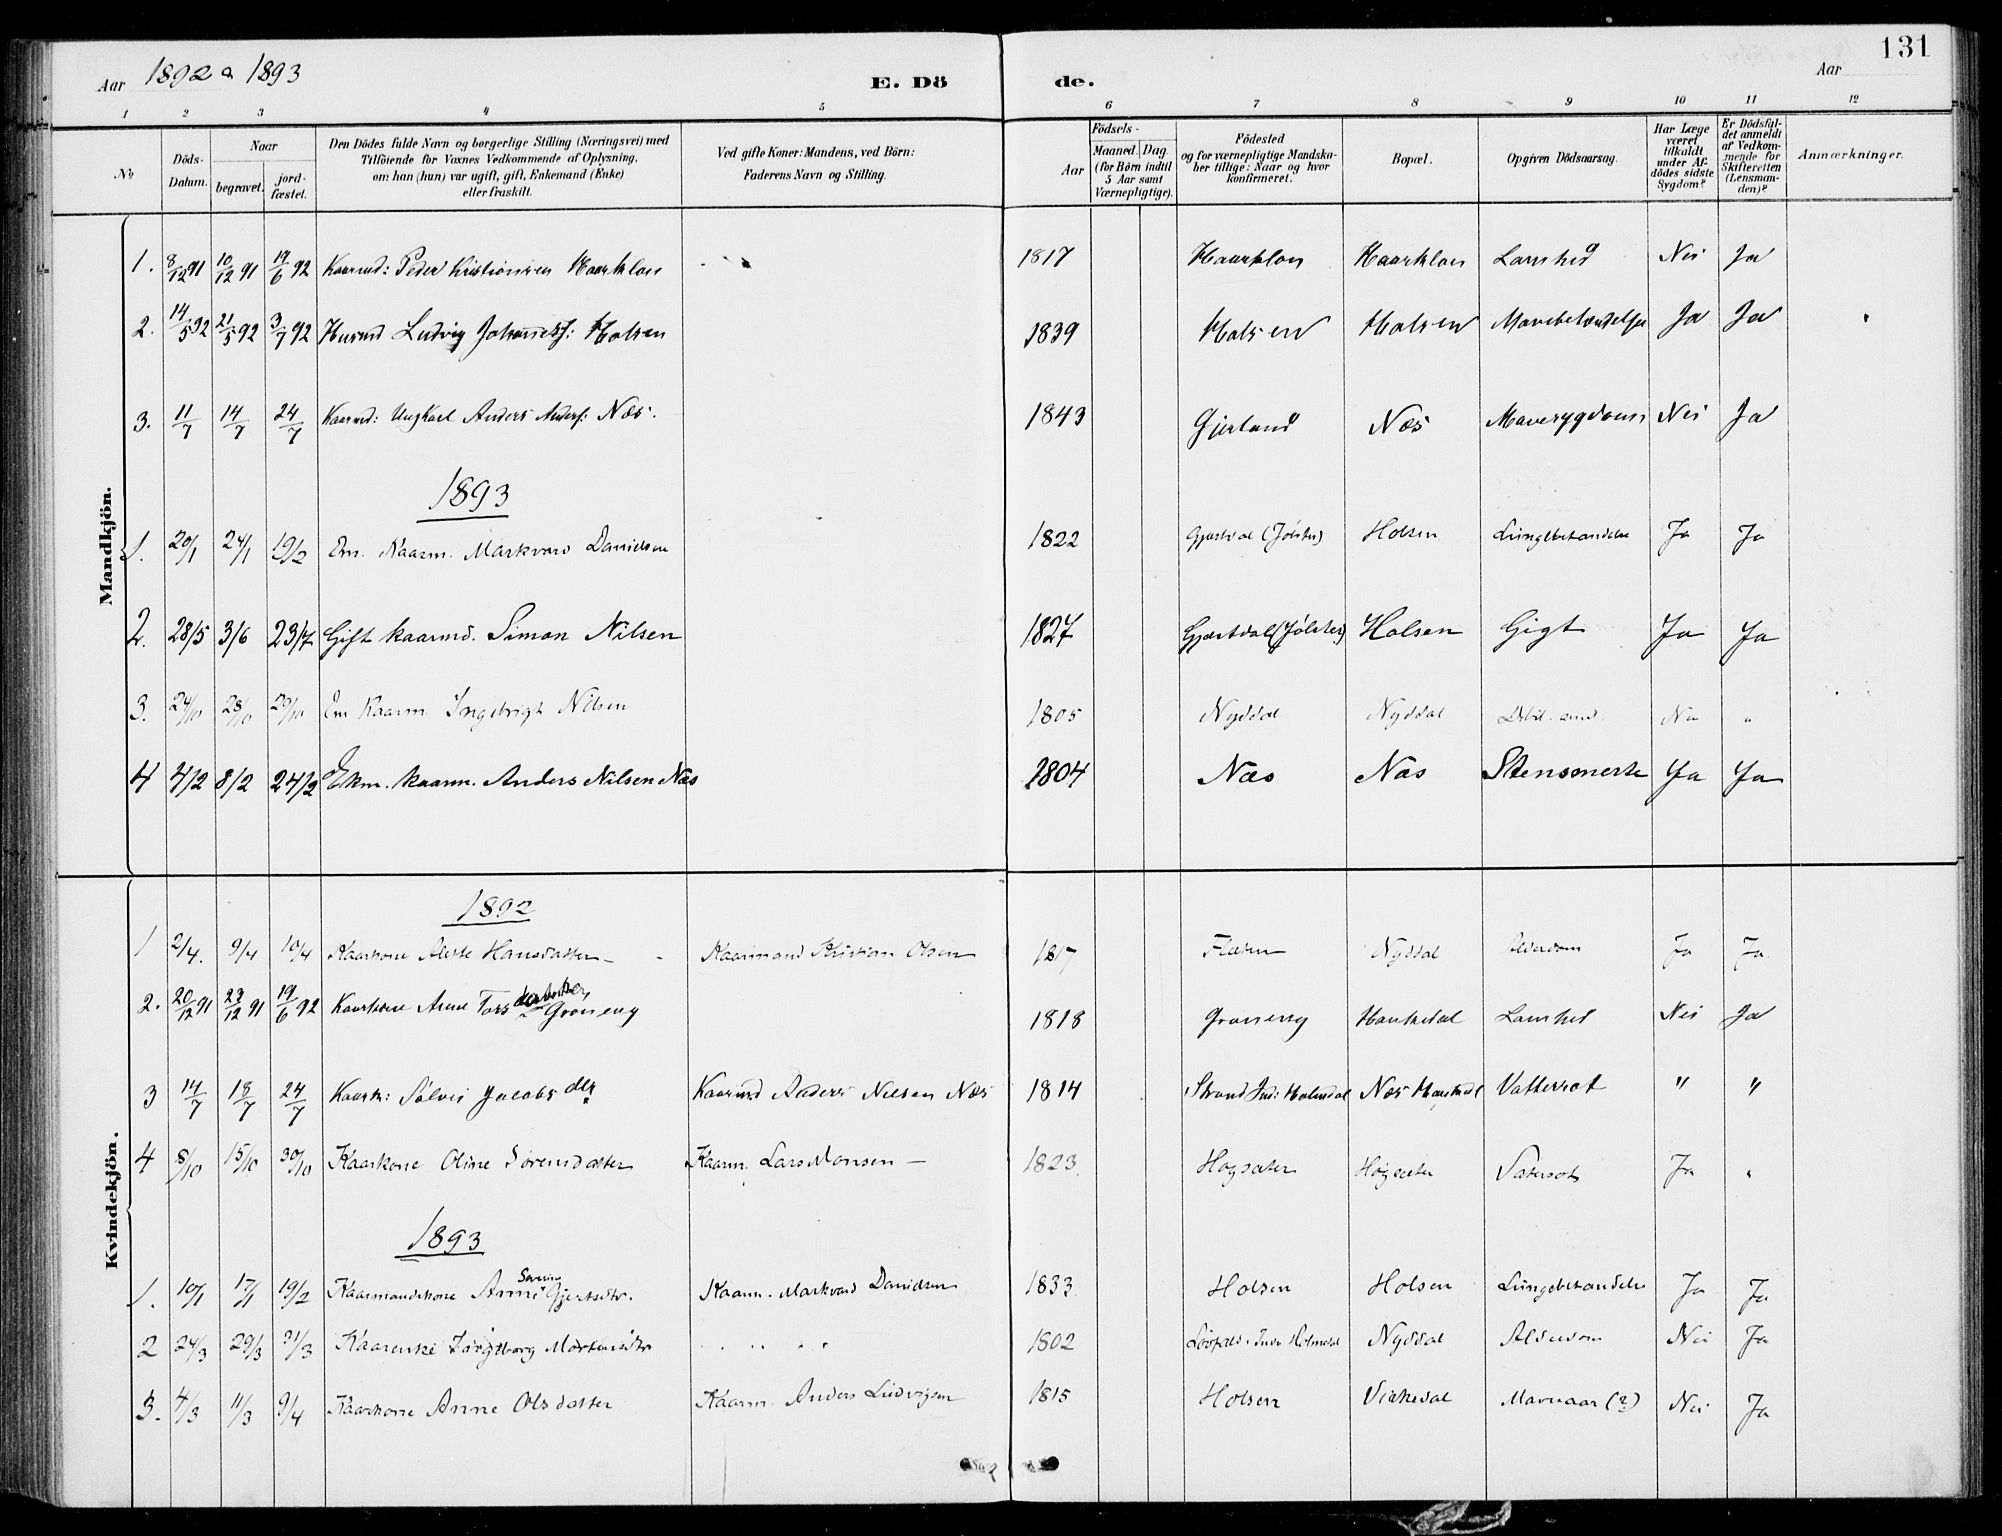 131
Aar 1892 a 1893 E. Dö de. Aar
1 2 3 4 5 6 7 8 9 10 11 12
No
Döds-Datum.
Naar
begravet.
jordfæstet.
Den Dödes fulde Navn og borgerlige Stilling (Næringsvei) med
Tilföiende for Voxnes Vedkommende af Oplysning,
om han (hun) var ugift, gift, Enkemand (Enke)
eller fraskilt.
Ved gifte Koner: Mandens, ved Börn:
Faderens Navn og Stilling.
Födsels-
Aar
Maaned. Dag.
(for Börn indtil
5 Aar samt
Værnepligtige).
Födested
og for værnepligtige Mandska-
ber tillige: Naar og hvor
konfirmeret.
Bopæl.
Opgiven Dödsaarsag.
Har Læge
været
tilkaldt
under Af-
dödes sidste
Sygdom?
Er Dödsfal-
det anmeldt
af Vedkom-
mende for
Skifteretten
(Lensman-
den)?
Anmærkninger.
Mandkjön.
1. 8/12 91 10/12 91 19/6 92 Kaarmd: Peder Kristiansen Haarklau 1817 Haarklau Haarklau Lamhed Nei Ja
2. 14/5 92 21/5 92 3/7 92 Husmd Ludvig Johannesf: Holsen 1839 Holsen Holsen Ja Ja
3. 11/7 14/7 24/7 Kaarmd: Ungkarl Anders Andersf: Næs. 1843 Gjerland Næs Mavesygdom Nei Ja
1893
1. 20/1 24/1 19/2 Em. Kaarm. Markvard Danielsen 1822 (Jølster) Holsen Lungebetændelse Ja Ja
2. 28/5 3/6 23/7 Gift kaarmd. Simon Nilsen 1827 Gjæsdal (Jølster) Holsen Gigt Ja Ja
3. 24/10 28/10 29/10 Em Kaarm. Ingebrigt Nilsen 1805 Nyddal Nyddal Debil. Nei "
4 4/2 8/2 24/2 Ekm. kaarm. Anders Nilsen Næs 1804 Næs Næs Stensmerte Ja Ja
Kvindekjön.
1892
1 2/4. 9/4 10/4 Kaarkone Hansdatter Kaarmand Kristian Olsen 1817 Nyddal Alderdom Ja Ja
2. 20/12 91 23/12 91 19/6 92 Kaarkone Anne Grøneng 1818 Grøneng Haukedal Lamhed Nei Ja
3 14/7 18/7 24/7 Kaark: Sølvei Jacobsdtr Kaarmd Anders Nilsen Næs 1814 Strand Ind: Holmdal Næs Haukedal Vattersot " "
4 8/10 15/10 30/10 Kaarkone Oline Sørensdatter Kaarm. Lars Monsen 1823 Høgsæter Høgsæter Vatersot Ja "
1893
1. 10/1 17/1 19/2 Kaarmandskone Anne Severine Gjertsdtr. Kaarm. Markvard Danielsen 1833 Holsen Holsen Lungebetændelse Ja Ja
2 24/3 29/3 31/3 Kaarenke Ingeborg Mortensdtr 1802 Indre Holmedal Nyddal Alderdom Nei Ja
3. 4/3 11/3 9/4 Kaarkone Anne Olsdatter Kaarm. Anders Ludvigsen 1815 Holsen Viekedal Mavesaar (?) Nei Ja